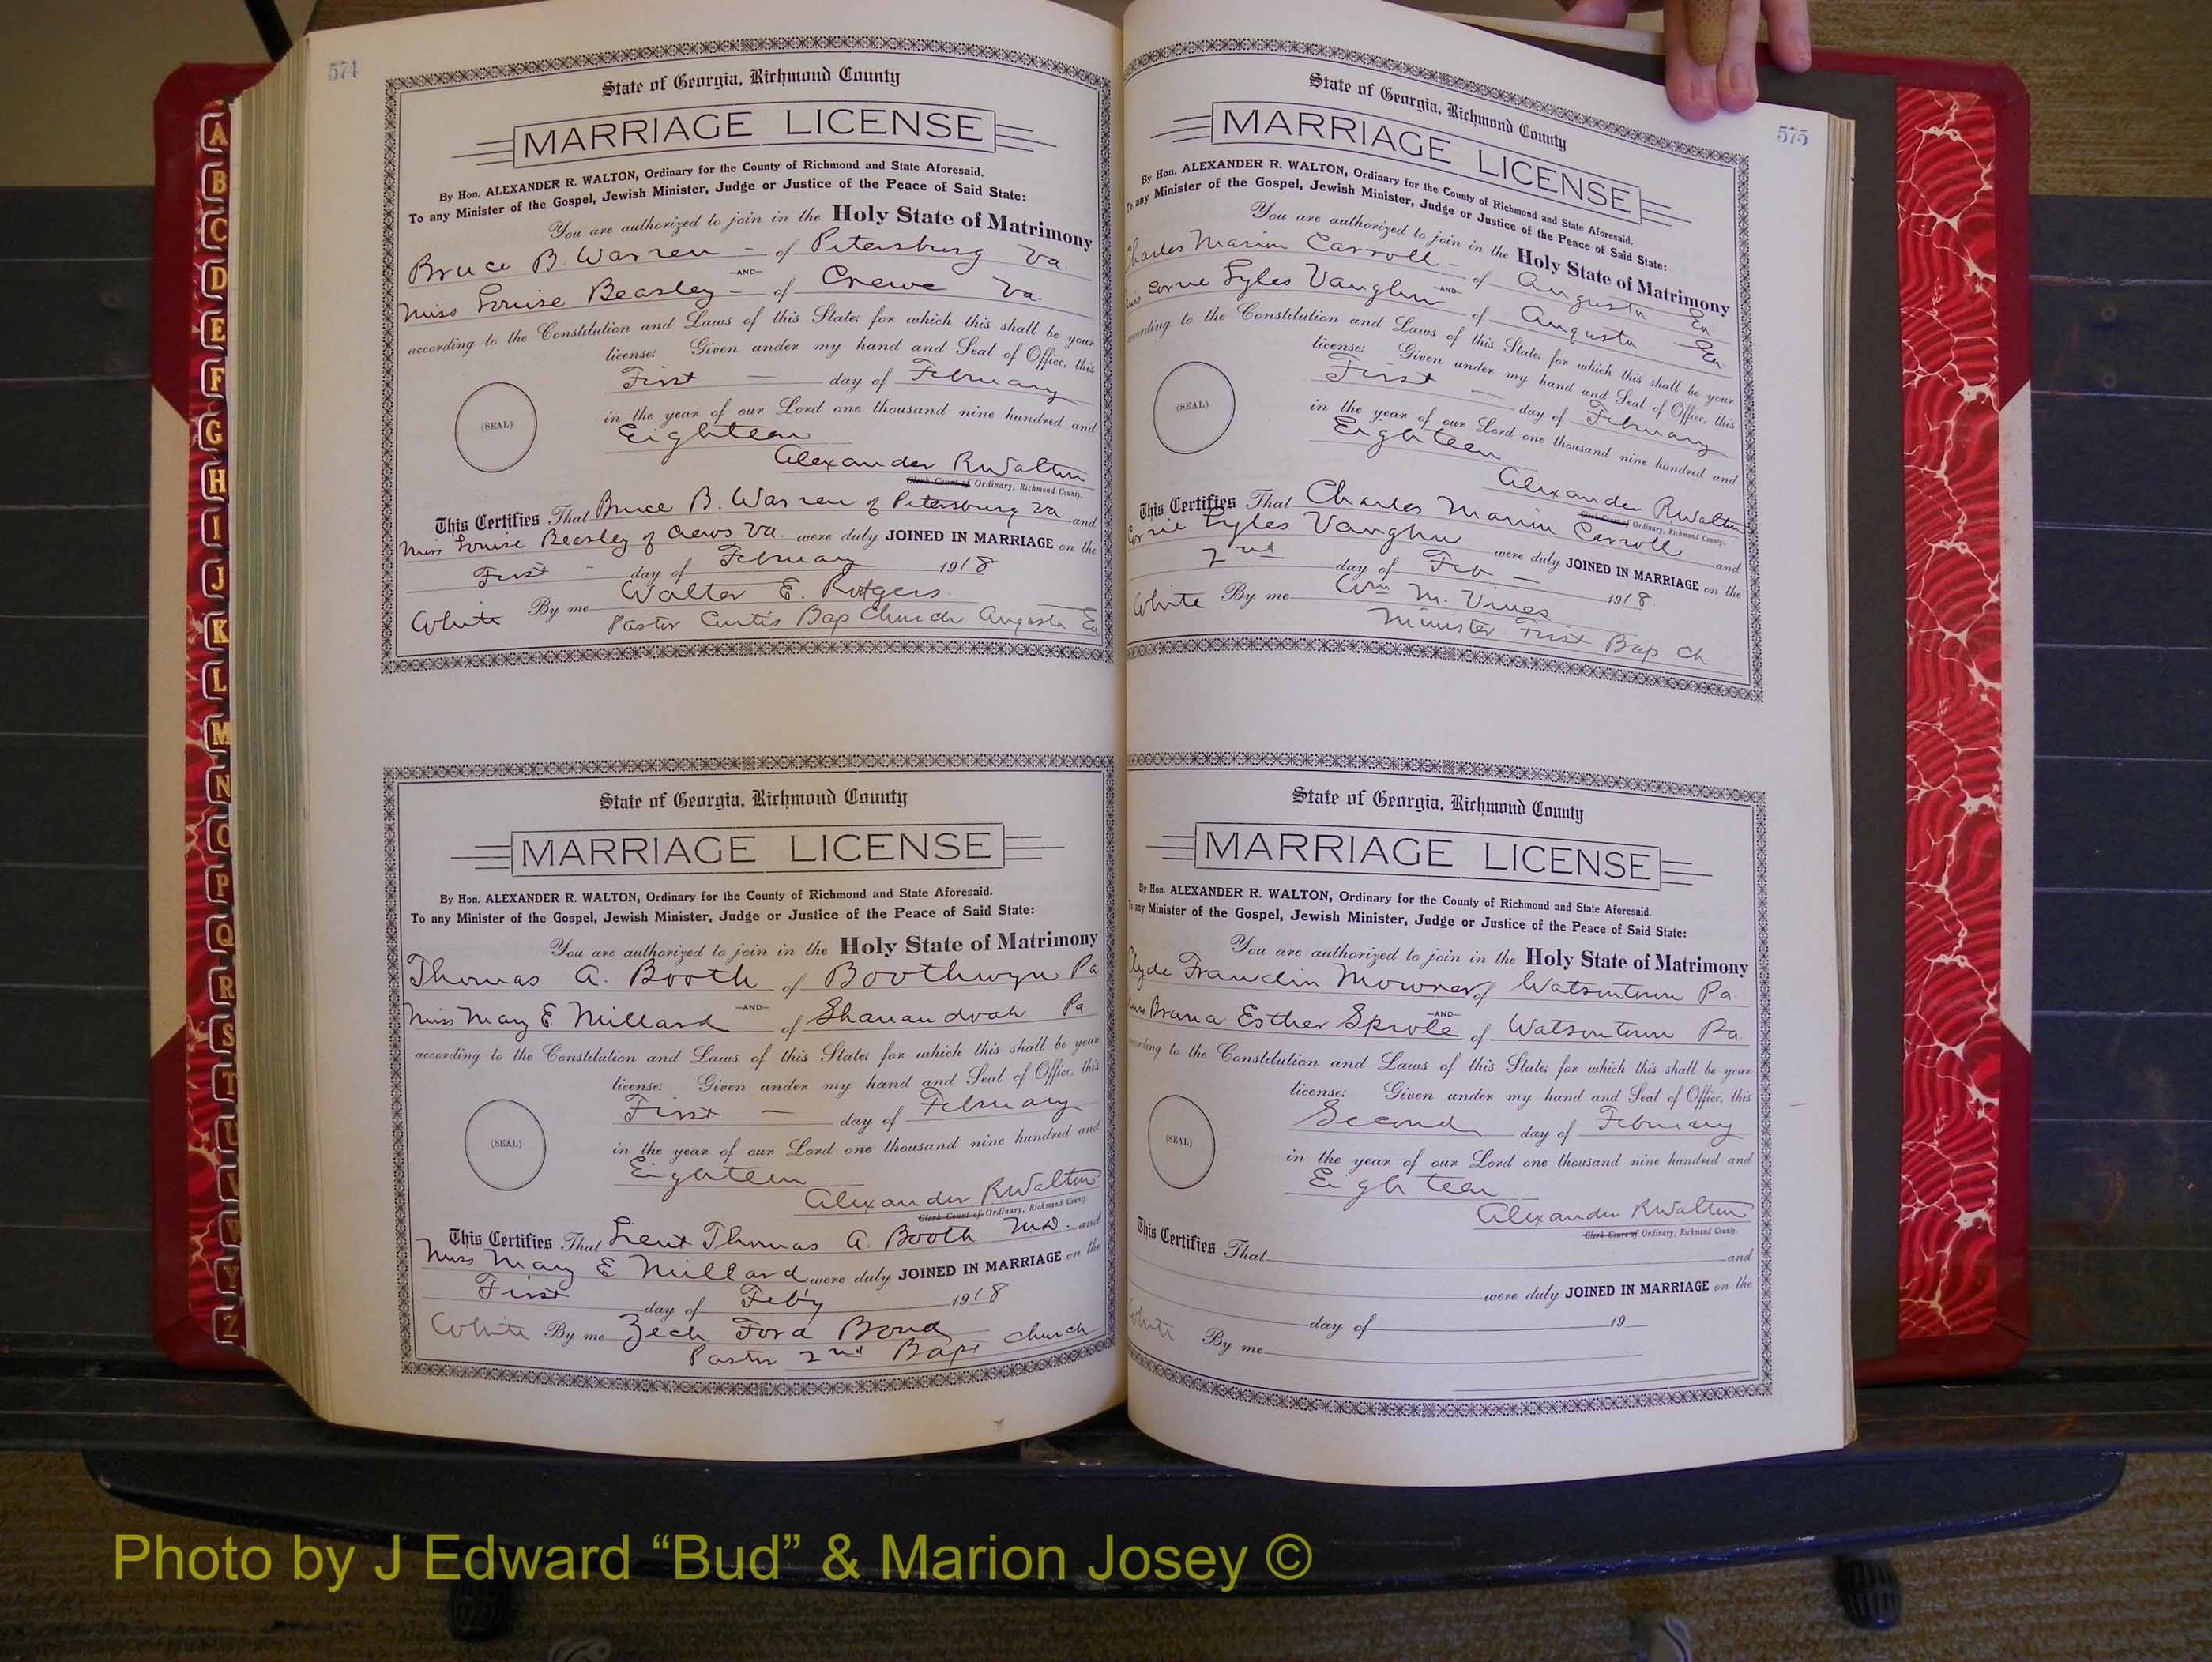 574
State of Georgia, Richmond County
MARRIAGE LICENSE
By Hon. ALEXANDER R. WALTON, Ordinary for the County of Richmond and State Aforesaid.
To any Minister of the Gospel, Jewish Minister, Judge or Justice of the Peace of Said State:
You are authorized to join in the Holy State of Matrimony
Bruce B. Warren - of Petersburg Va.
-AND-
Miss Louise Beasley - of Crewe Va.
according to the Constitution and Laws of this State; for which this shall be your
license: Given under my hand and Seal of Office, this
First - day of February
(SEAL)
in the year of our Lord one thousand nine hundred and
Eighteen
Alexander R Walton
Clerk Court of Ordinary, Richmond County.
This Certifies That Bruce B. Warren of Petersburg Va and
Miss Louise Beasley of Crews Va. were duly JOINED IN MARRIAGE on the
First - day of February 1918
White By me Walter E. Rodgers
Pastor Curtis Bap Church Augusta Ga
State of Georgia, Richmond County
MARRIAGE LICENSE
By Hon. ALEXANDER R. WALTON, Ordinary for the County of Richmond and State Aforesaid.
To any Minister of the Gospel, Jewish Minister, Judge or Justice of the Peace of Said State:
You are authorized to join in the Holy State of Matrimony
Thomas A. Booth of Boothwyn Pa
-AND-
Miss Mary E. Millard of Shanandoah Pa
according to the Constitution and Laws of this State; for which this shall be your
license: Given under my hand and Seal of Office, this
First - day of February
(SEAL)
in the year of our Lord one thousand nine hundred and
Eighteen
Alexander R. Walton
Clerk Court of Ordinary, Richmond County
This Certifies That Lieut Thomas A. Booth and
Miss Mary E Millard were duly JOINED IN MARRIAGE on the
First day of Feb'y 1918
White By me Zech Ford Bond
Pastor 2nd Bapt church
575
State of Georgia, Richmond County
MARRIAGE LICENSE
By Hon. ALEXANDER R. WALTON, Ordinary for the County of Richmond and State Aforesaid.
To any Minister of the Gospel, Jewish Minister, Judge or Justice of the Peace of Said State:
You are authorized to join in the Holy State of Matrimony
Charles Marion Carroll - of Augusta Ga
-AND-
Corrie Lyles Vaughn of Augusta Ga
according to the Constitution and Laws of this State; for which this shall be your
license: Given under my hand and Seal of Office, this
First - day of February
(SEAL)
in the year of our Lord one thousand nine hundred and
Eighteen
Alexander R. Walton
Clerk Court of Ordinary, Richmond County.
This Certifies That Charles Marion Carroll and
Corrie Lyles Vaughn were duly JOINED IN MARRIAGE on the
2nd day of Feb - 1918.
White By me Wm M. Vines
Minister First Bap Ch
State of Georgia, Richmond County
MARRIAGE LICENSE
By Hon. ALEXANDER R. WALTON, Ordinary for the County of Richmond and State Aforesaid.
To any Minister of the Gospel, Jewish Minister, Judge or Justice of the Peace of Said State:
You are authorized to join in the Holy State of Matrimony
Clyde Franclin of Watsontown Pa.
-AND-
Esther Sprole of Watsontown Pa.
according to the Constitution and Laws of this State; for which this shall be your
license: Given under my hand and Seal of Office, this
Second day of February
(SEAL)
in the year of our Lord one thousand nine hundred and
Eighteen
Alexander R Walton
Clerk Court of Ordinary, Richmond County.
This Certifies That and
were duly JOINED IN MARRIAGE on the
day of 19
White By me
A
B
C
D
E
F
G
H
I
J
K
L
M
N
O
P
Q
R
S
T
U
V
W
Y
Z
Photo by J Edward “Bud” & Marion Josey ©